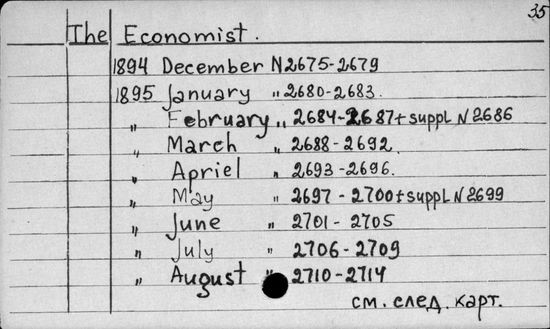 35
The Economist.
1894 December N 2675-2679
1895 January " 2680-2683.
" February " 2684-2687 + suppl N 2686
" March " 2688-2692.
" Apriel " 2693-2696.
" May " 2697-2700 + suppl N 2699
" June " 2701-2705
" July " 2706-2709
" August " 2710-2714
см. след. карт.